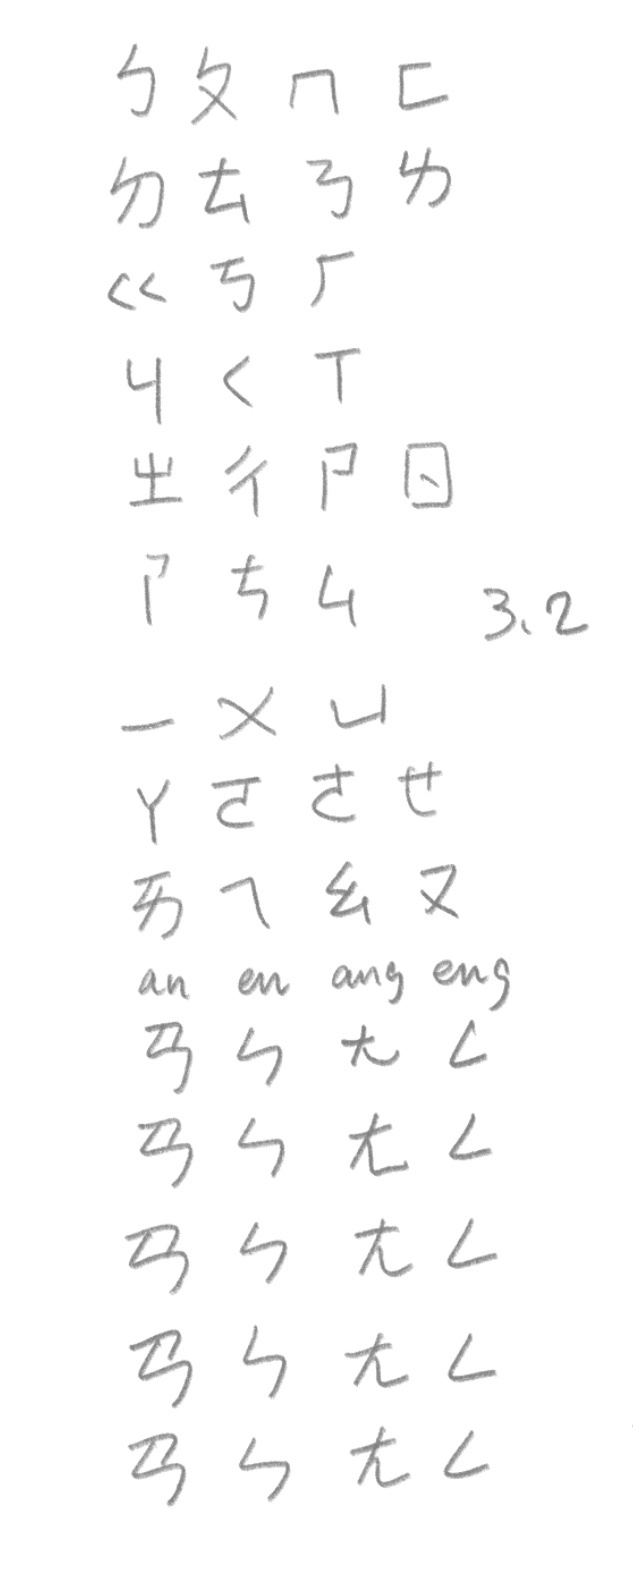 ㄅ ㄆ ㄇ ㄈ
ㄉ ㄊ ㄋ ㄌ
ㄍ ㄎ ㄏ
ㄐ ㄑ ㄒ
ㄓ ㄔ ㄕ ㄖ
ㄗ ㄘ ㄙ
3.2
ㄧ ㄨ ㄩ
ㄚ ㄛ ㄜ ㄝ
ㄞ ㄟ ㄠ ㄡ
an en ang eng
ㄢ ㄣ ㄤ ㄥ
ㄢ ㄣ ㄤ ㄥ
ㄢ ㄣ ㄤ ㄥ
ㄢ ㄣ ㄤ ㄥ
ㄢ ㄣ ㄤ ㄥ